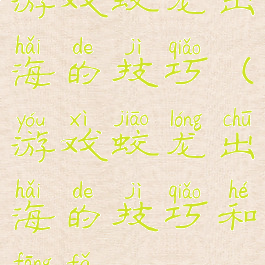 游戏蛟龙出
hǎi de jì qiǎo
海的技巧（
yóu xì jiāo lóng chū
游戏蛟龙出
hǎi de jì qiǎo hé
海的技巧和
fāng fǎ